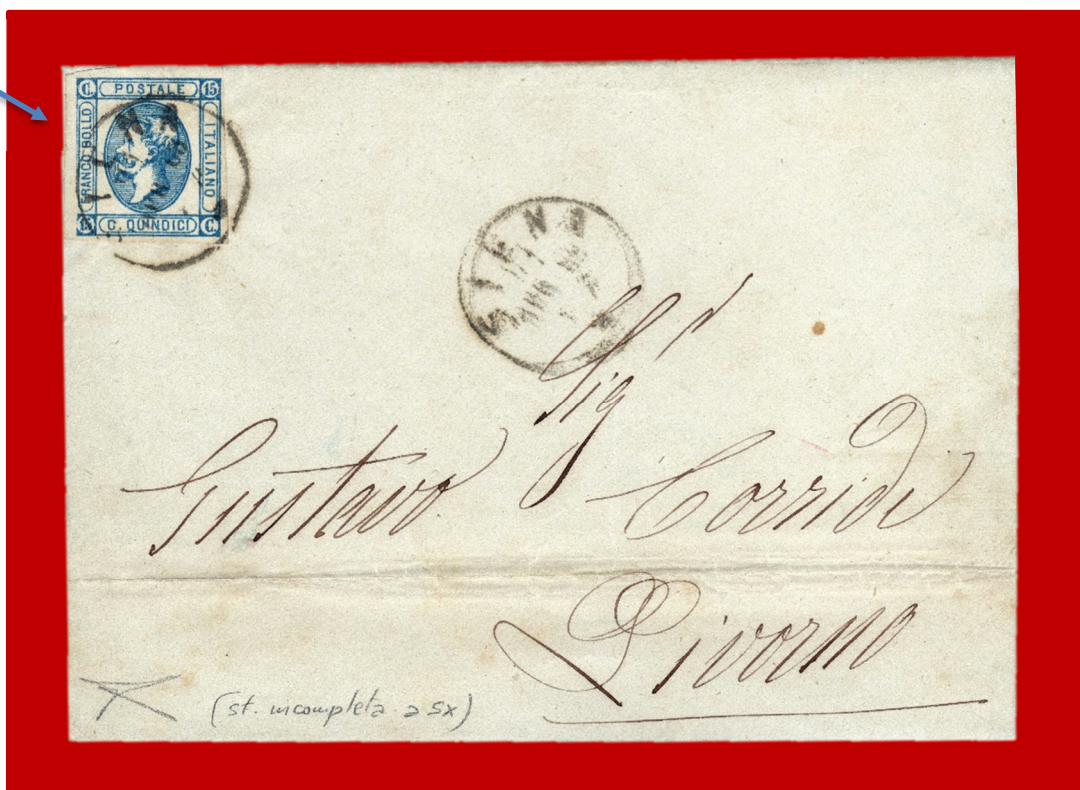 C. POSTALE 15
FRANCO BOLLO
ITALIANO
15 C. QUINDICI C.
SIENA
SIENA
Sigr
Gustavo Corridi
Livorno
(st. incompleta a sx)